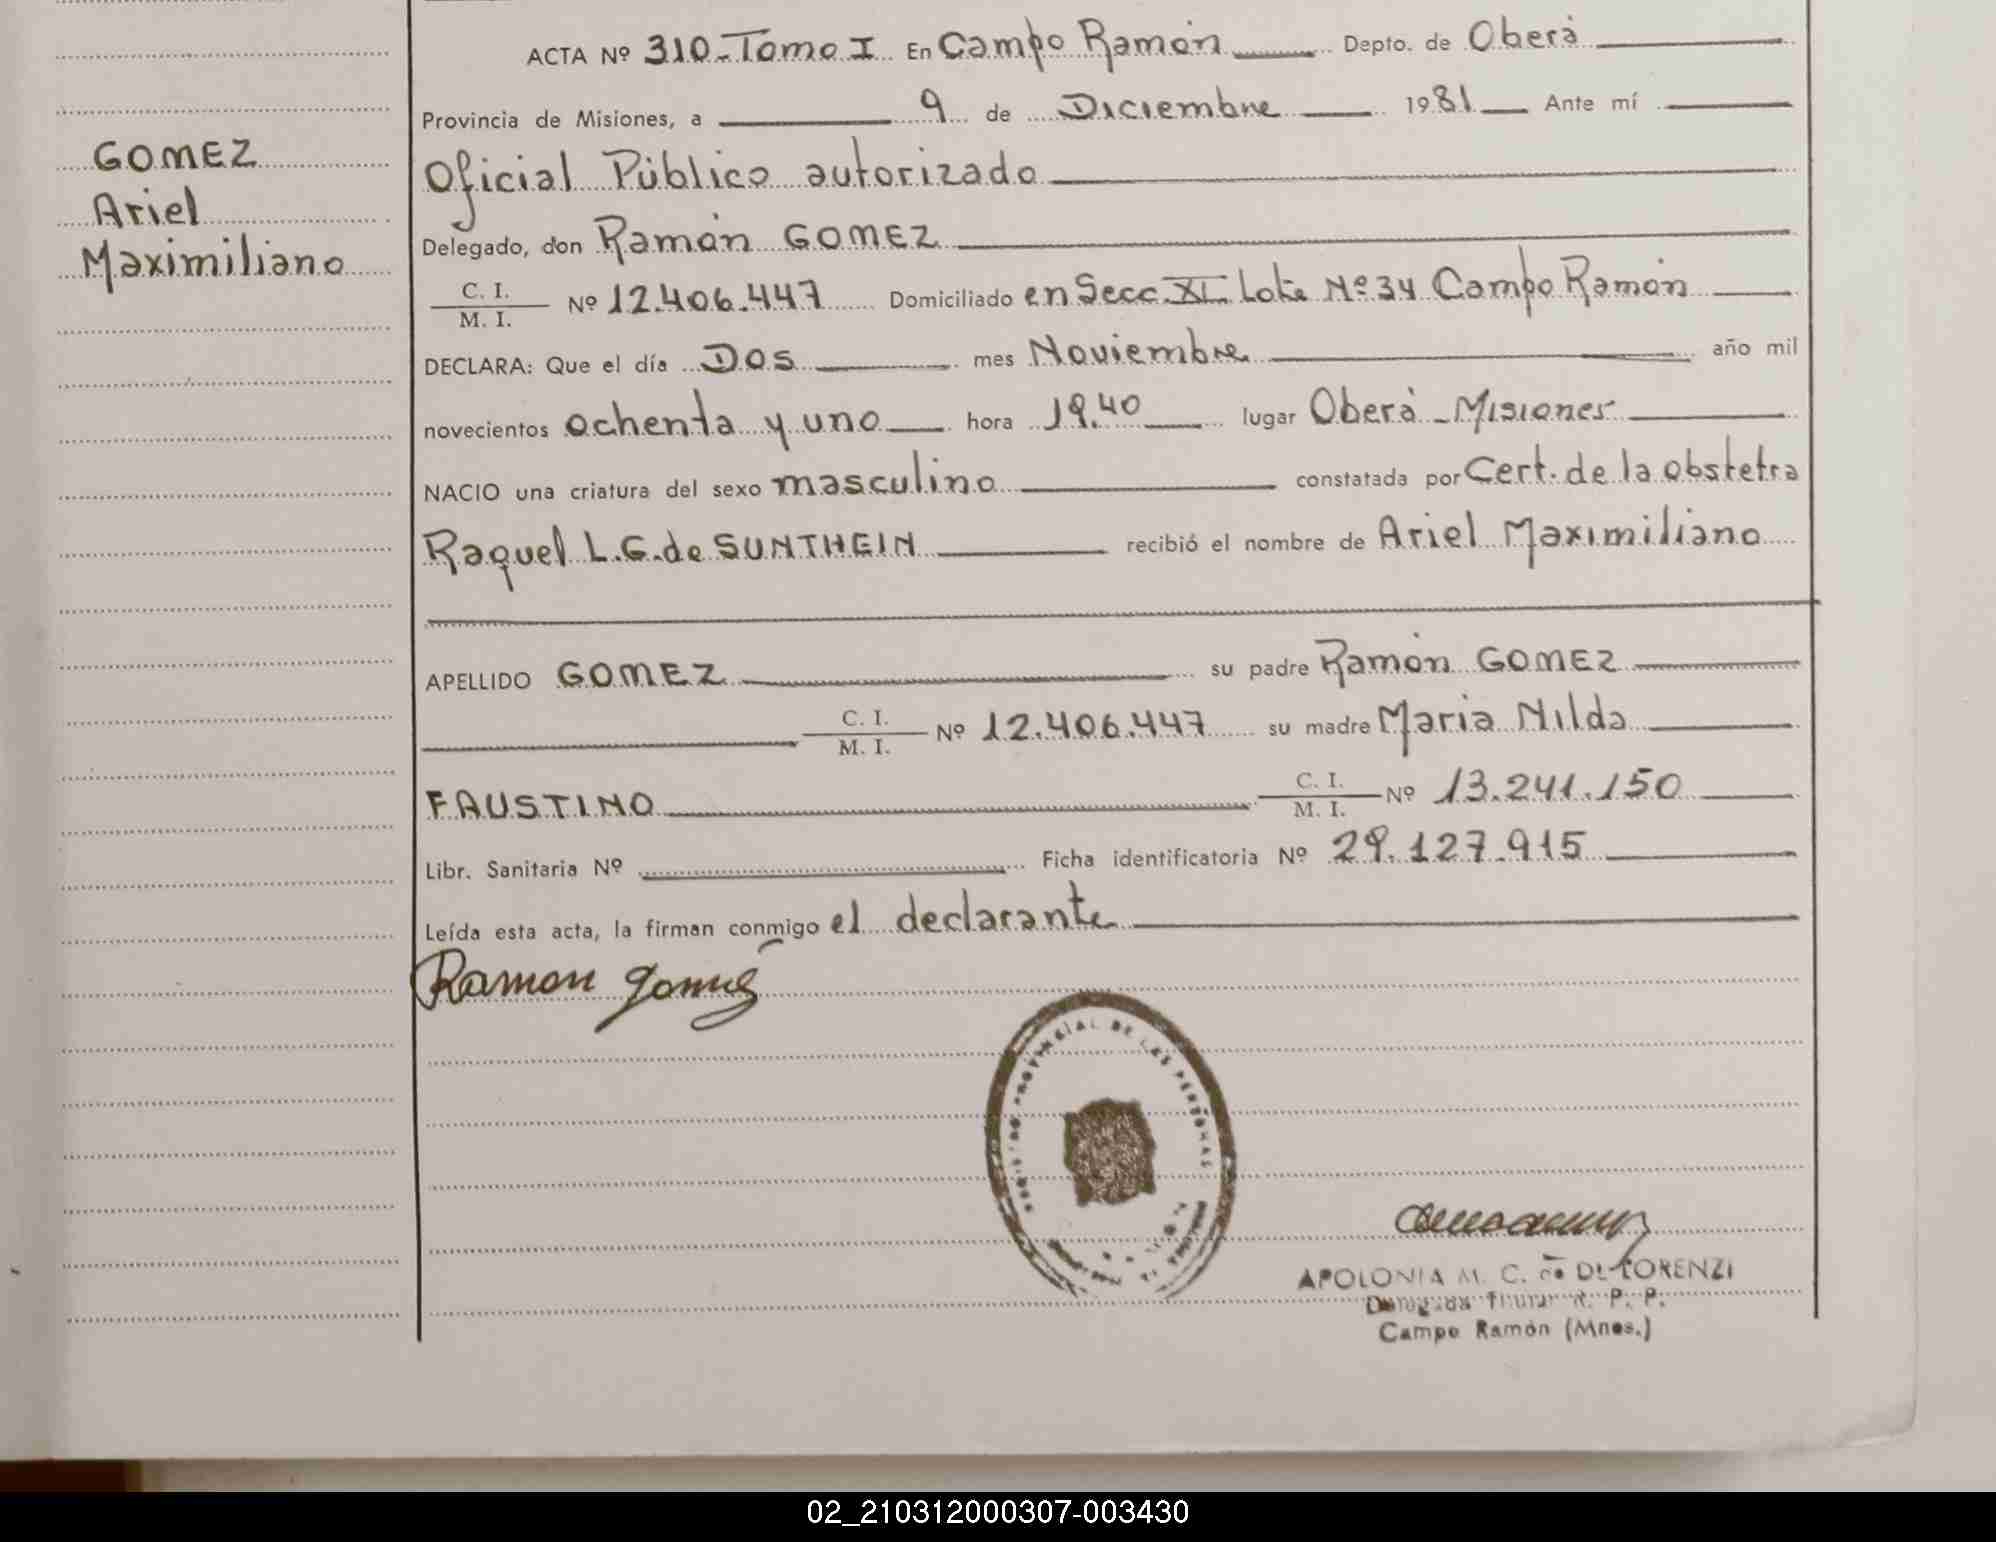 ACTA Nº 310-Tomo I En Campo Ramón Depto. de Oberá
Provincia de Misiones, a 9 de Diciembre 1981 Ante mí
Oficial Público autorizado
Delegado, don Ramón GOMEZ
C. I.
M. I. Nº 12.406.447 Domiciliado en Secc. XI Lote Nº 34 Campo Ramón
DECLARA: Que el día Dos mes Noviembre año mil
novecientos ochenta y uno hora 19.40 lugar Oberá - Misiones
NACIO una criatura del sexo masculino constatada por Cert. de la obstetra
Raquel L.G. de SUNTHEIN recibió el nombre de Ariel Maximiliano
APELLIDO GOMEZ su padre Ramón GOMEZ
C. I.
M. I. Nº 12.406.447 su madre Maria Nilda
FAUSTINO C. I.
M. I. Nº 13.241.150
Libr. Sanitaria Nº Ficha identificatoria Nº 29.127.915
Leída esta acta, la firman conmigo el declarante
Ramon Gomez
GOMEZ
Ariel
Maximiliano
PROVINCIAL DE LAS PERSONAS
APOLONIA M. C. de DE LORENZI
R. P. P.
Campo Ramón (Mnes.)
02_210312000307-003430